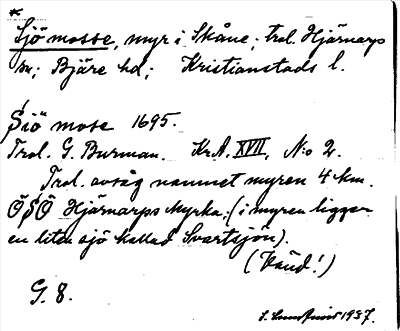 *
Sjö mosse, myr i Skåne; trol. Hjärnarps
sn; Bjäre hd; Kristianstads l.
Siö mose 1695.
Trol. G. Burman. Kr.A. XVII, N:o 2.
Trol. avsåg namnet myren 4 km.
ÖSÖ Hjärnarps Myrka. (i myren ligger
en liten sjö kallad Svartsjön).
(Vänd!)
G. 8.
1937.